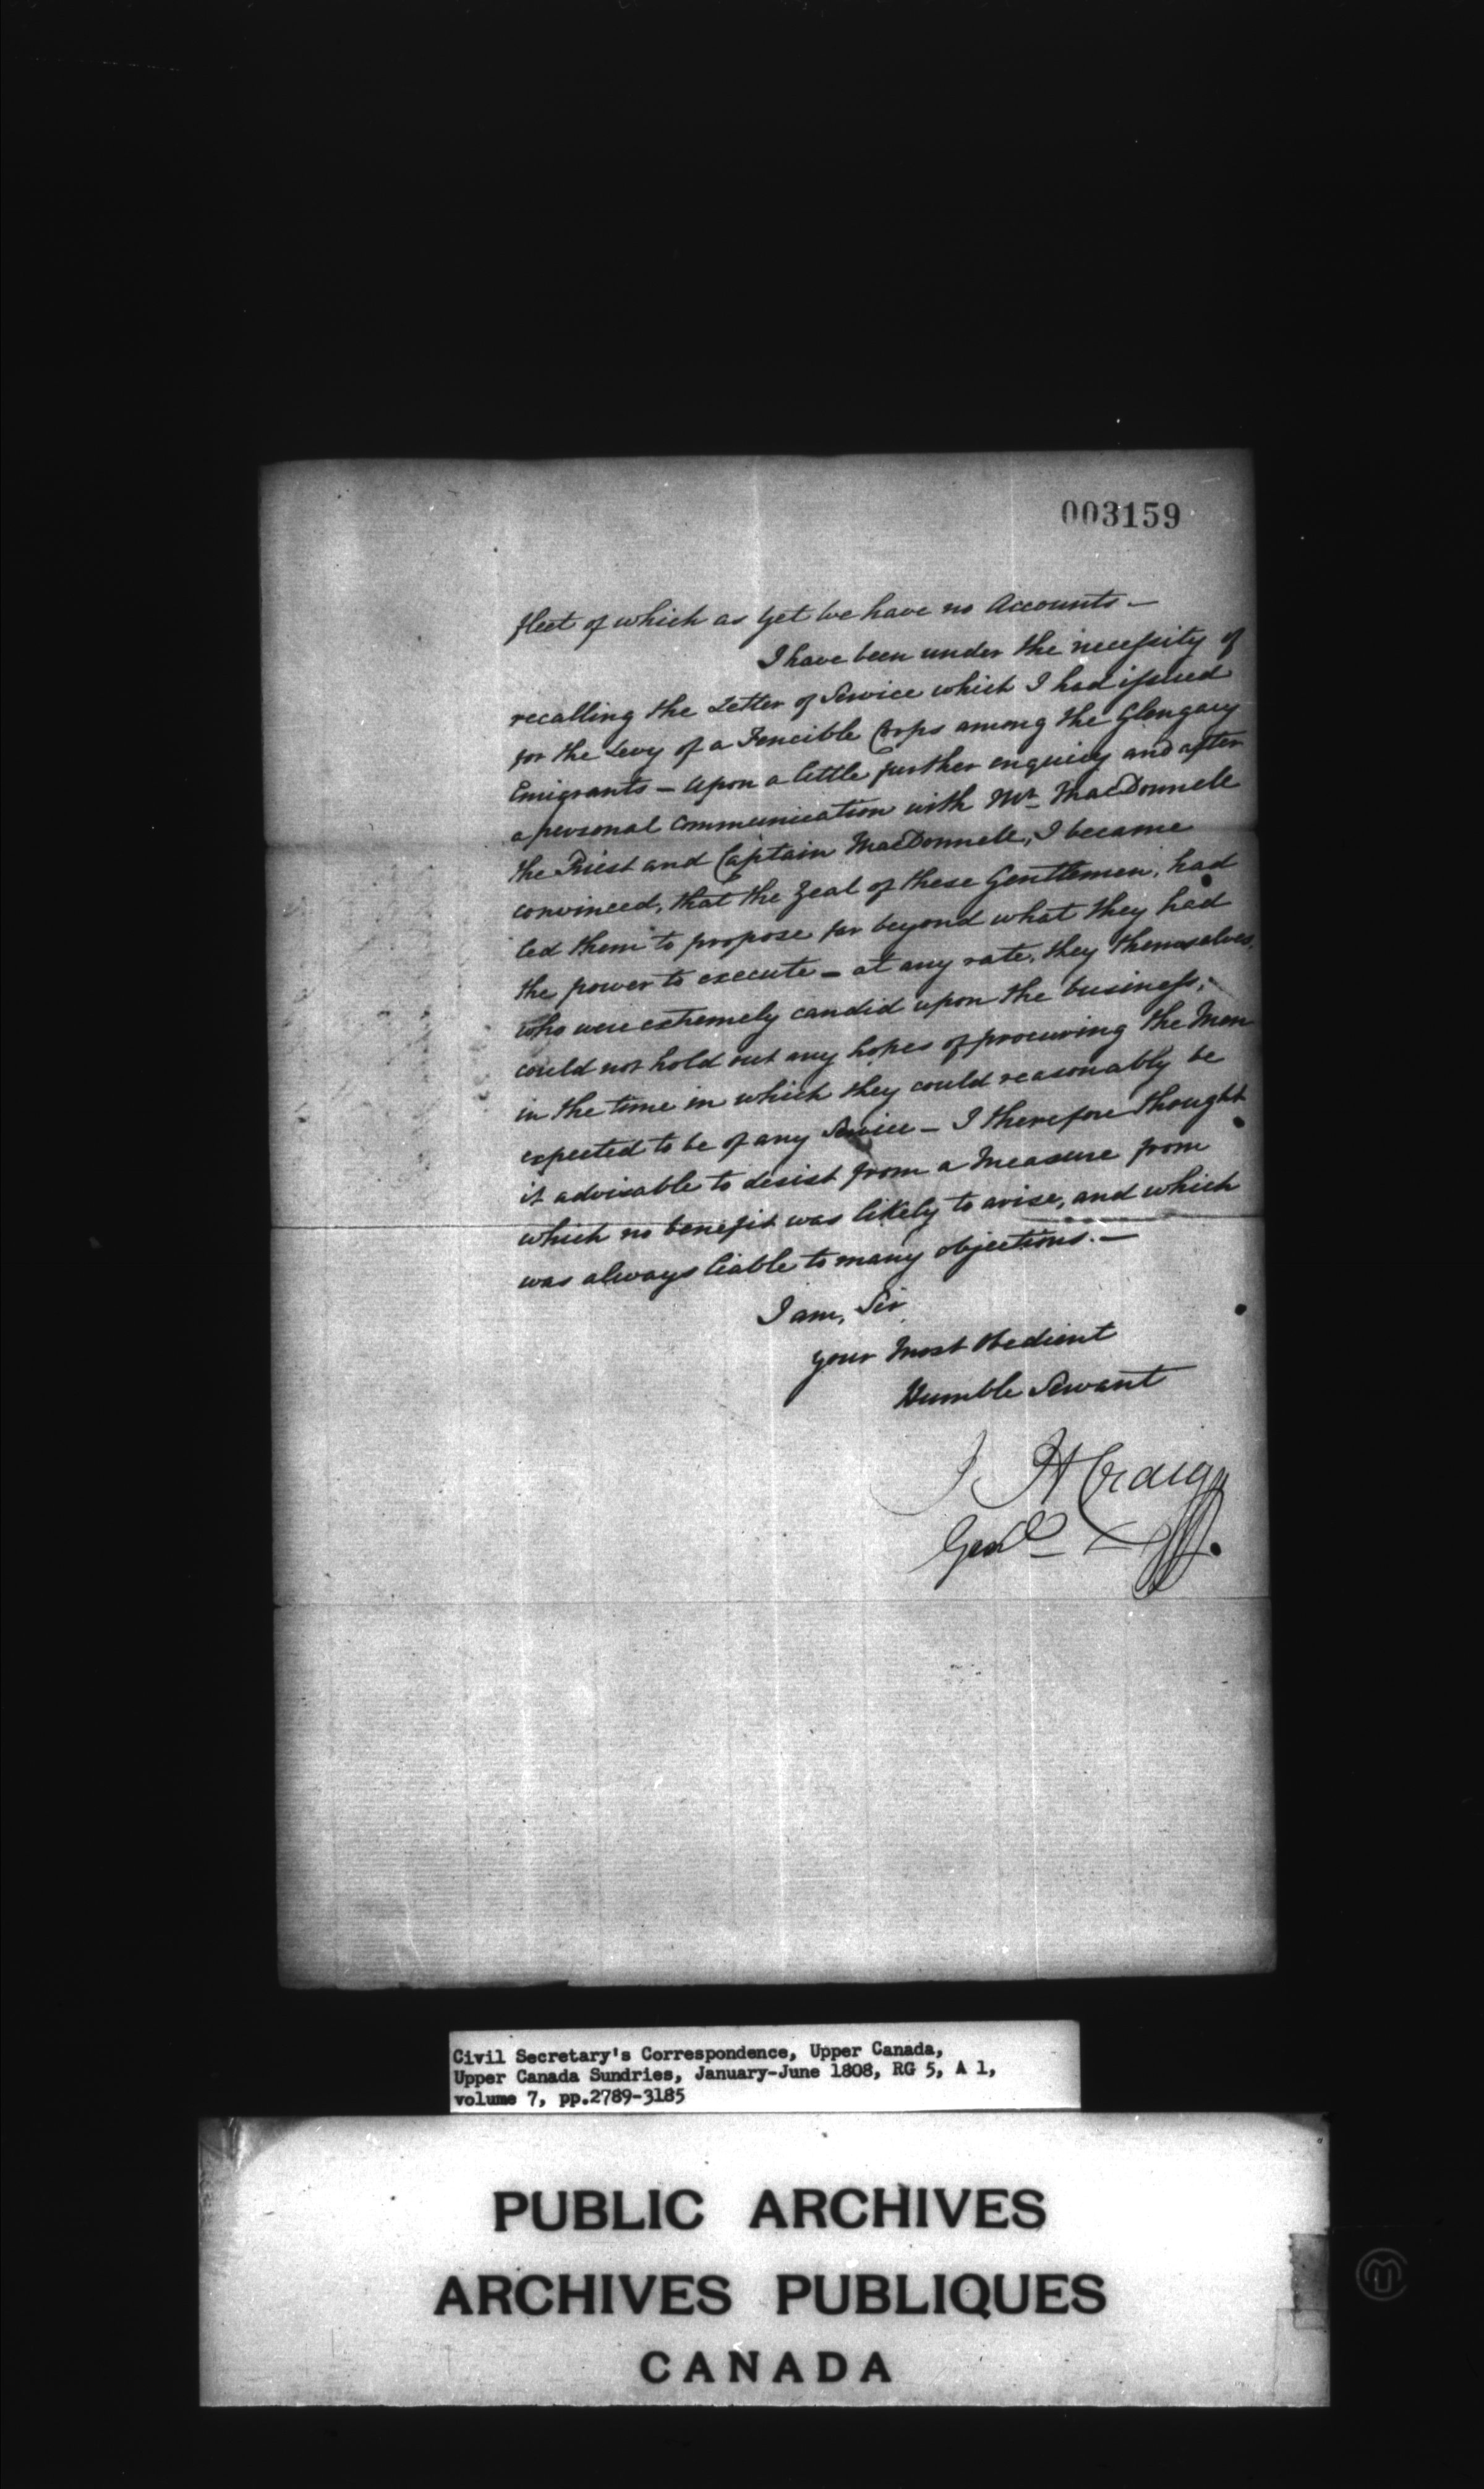 003159
fleet of which as yet we have no Accounts.—
I have been under the necessity of
recalling the Letter of Service which I had issued
for the Levy of a Fencible Corps among the Glengary
Emigrants — Upon a little further enquiry and after
a personal communication with Mr. MacDonnell
the Priest and Captain MacDonnell, I became
convinced, that the Zeal of these Gentlemen, had
led them to propose far beyond what they had
the power to execute — at any rate, they themselves,
who were extremely candid upon the business,
could not hold out any hopes of procuring the Men
in the time in which they could reasonably be
expected to be of any Service — I therefore thought
it advisable to desist from a Measure from
which no benefit was likely to arise, and which
was always liable to many objections.—
I am, Sir
your Most Obedient
Humble Servant
J H Craig
Genl
Civil Secretary's Correspondence, Upper Canada,
Upper Canada Sundries, January-June 1808, RG 5, A 1,
volume 7, pp.2789-3185
PUBLIC ARCHIVES
ARCHIVES PUBLIQUES
CANADA